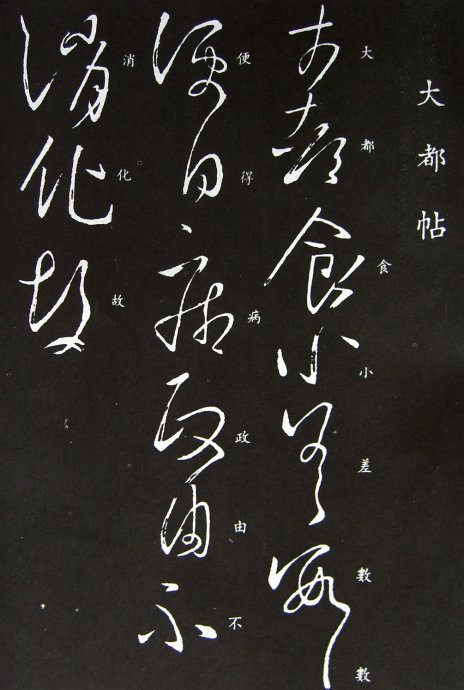 大都帖
大都食小差數數
便得病政由不
消化故